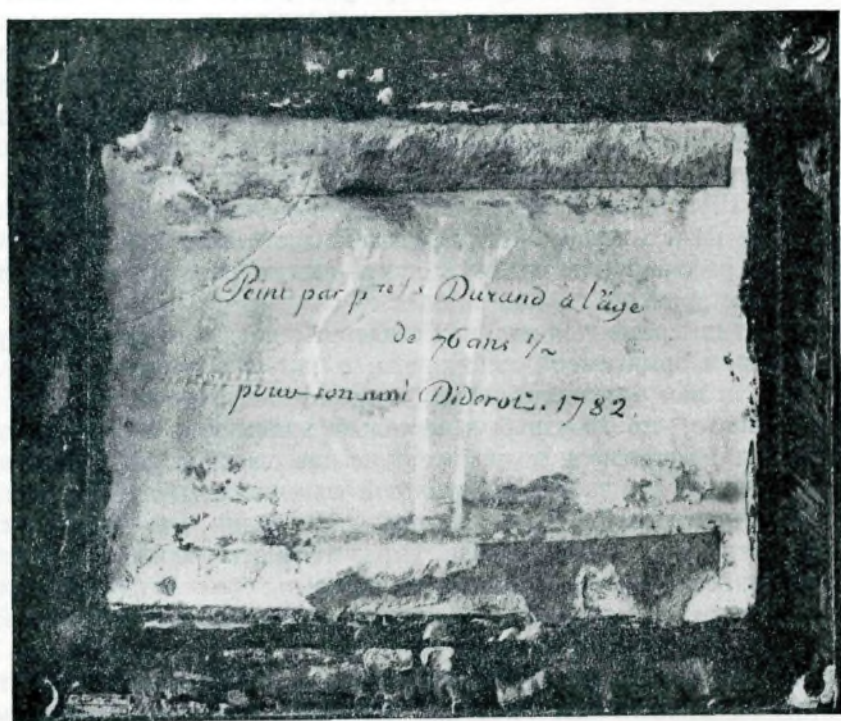 Peint par p.re f.s Durand à l'âge
de 76 ans 1/2
pour son ami Diderot. 1782.